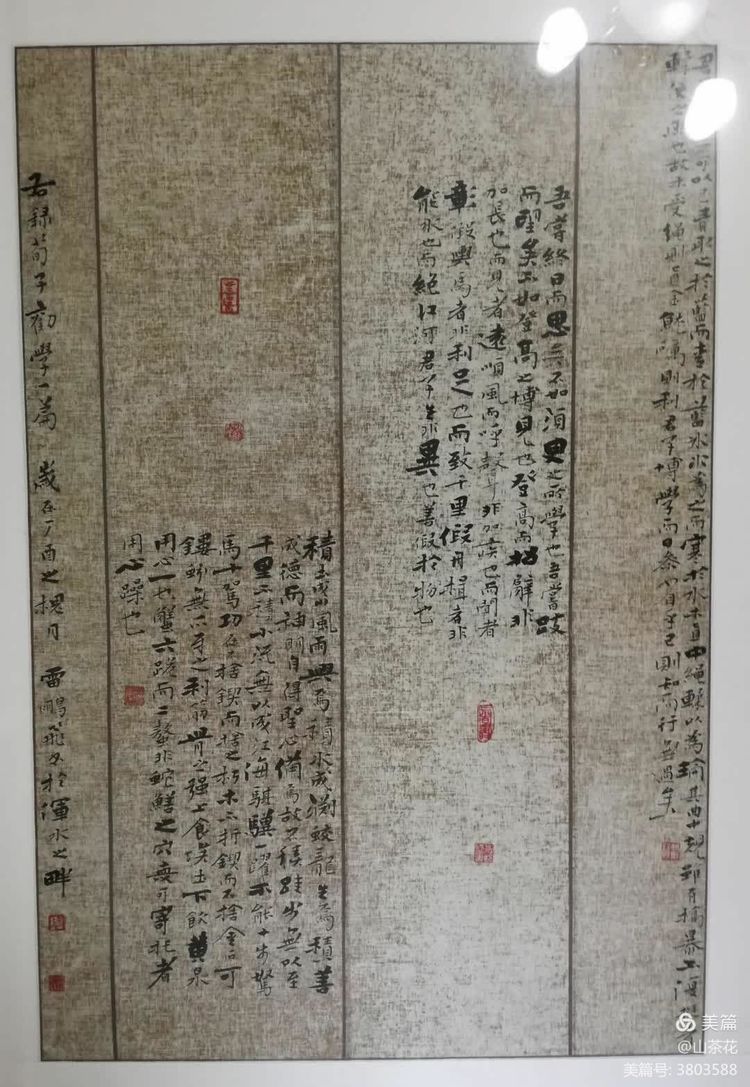 可以已青取之於藍而青於藍冰水為之而寒於水木直中繩輮以為輪其曲中規雖有槁暴不復
輮使之然也故木受繩則直金就礪則利君子博學而日參省乎己則知而行無過矣
吾嘗終日而思矣不如須臾之所學也吾嘗跂
而望矣不如登高之博見也登高而招臂非
加長也而見者遠順風而呼聲非加疾也而聞者
彰假輿馬者非利足也而致千里假舟楫者非
能水也而絕江河君子生非異也善假於物也
積土成山風雨興焉積水成淵蛟龍生焉積善
成德而神明自得聖心備焉故不積跬步無以至
千里不積小流無以成江海騏驥一躍不能十步駑
馬十駕功在不捨鍥而捨之朽木不折鍥而不捨金石可
鏤蚓無爪牙之利筋骨之強上食埃土下飲黃泉
用心一也蟹六跪而二螯非蛇鱔之穴無可寄托者
用心躁也
右錄荀子勸學一篇 歲在丁酉之槐月 雷鵬飛書於渾水之畔
美篇
@山茶花
美篇号: 3803588